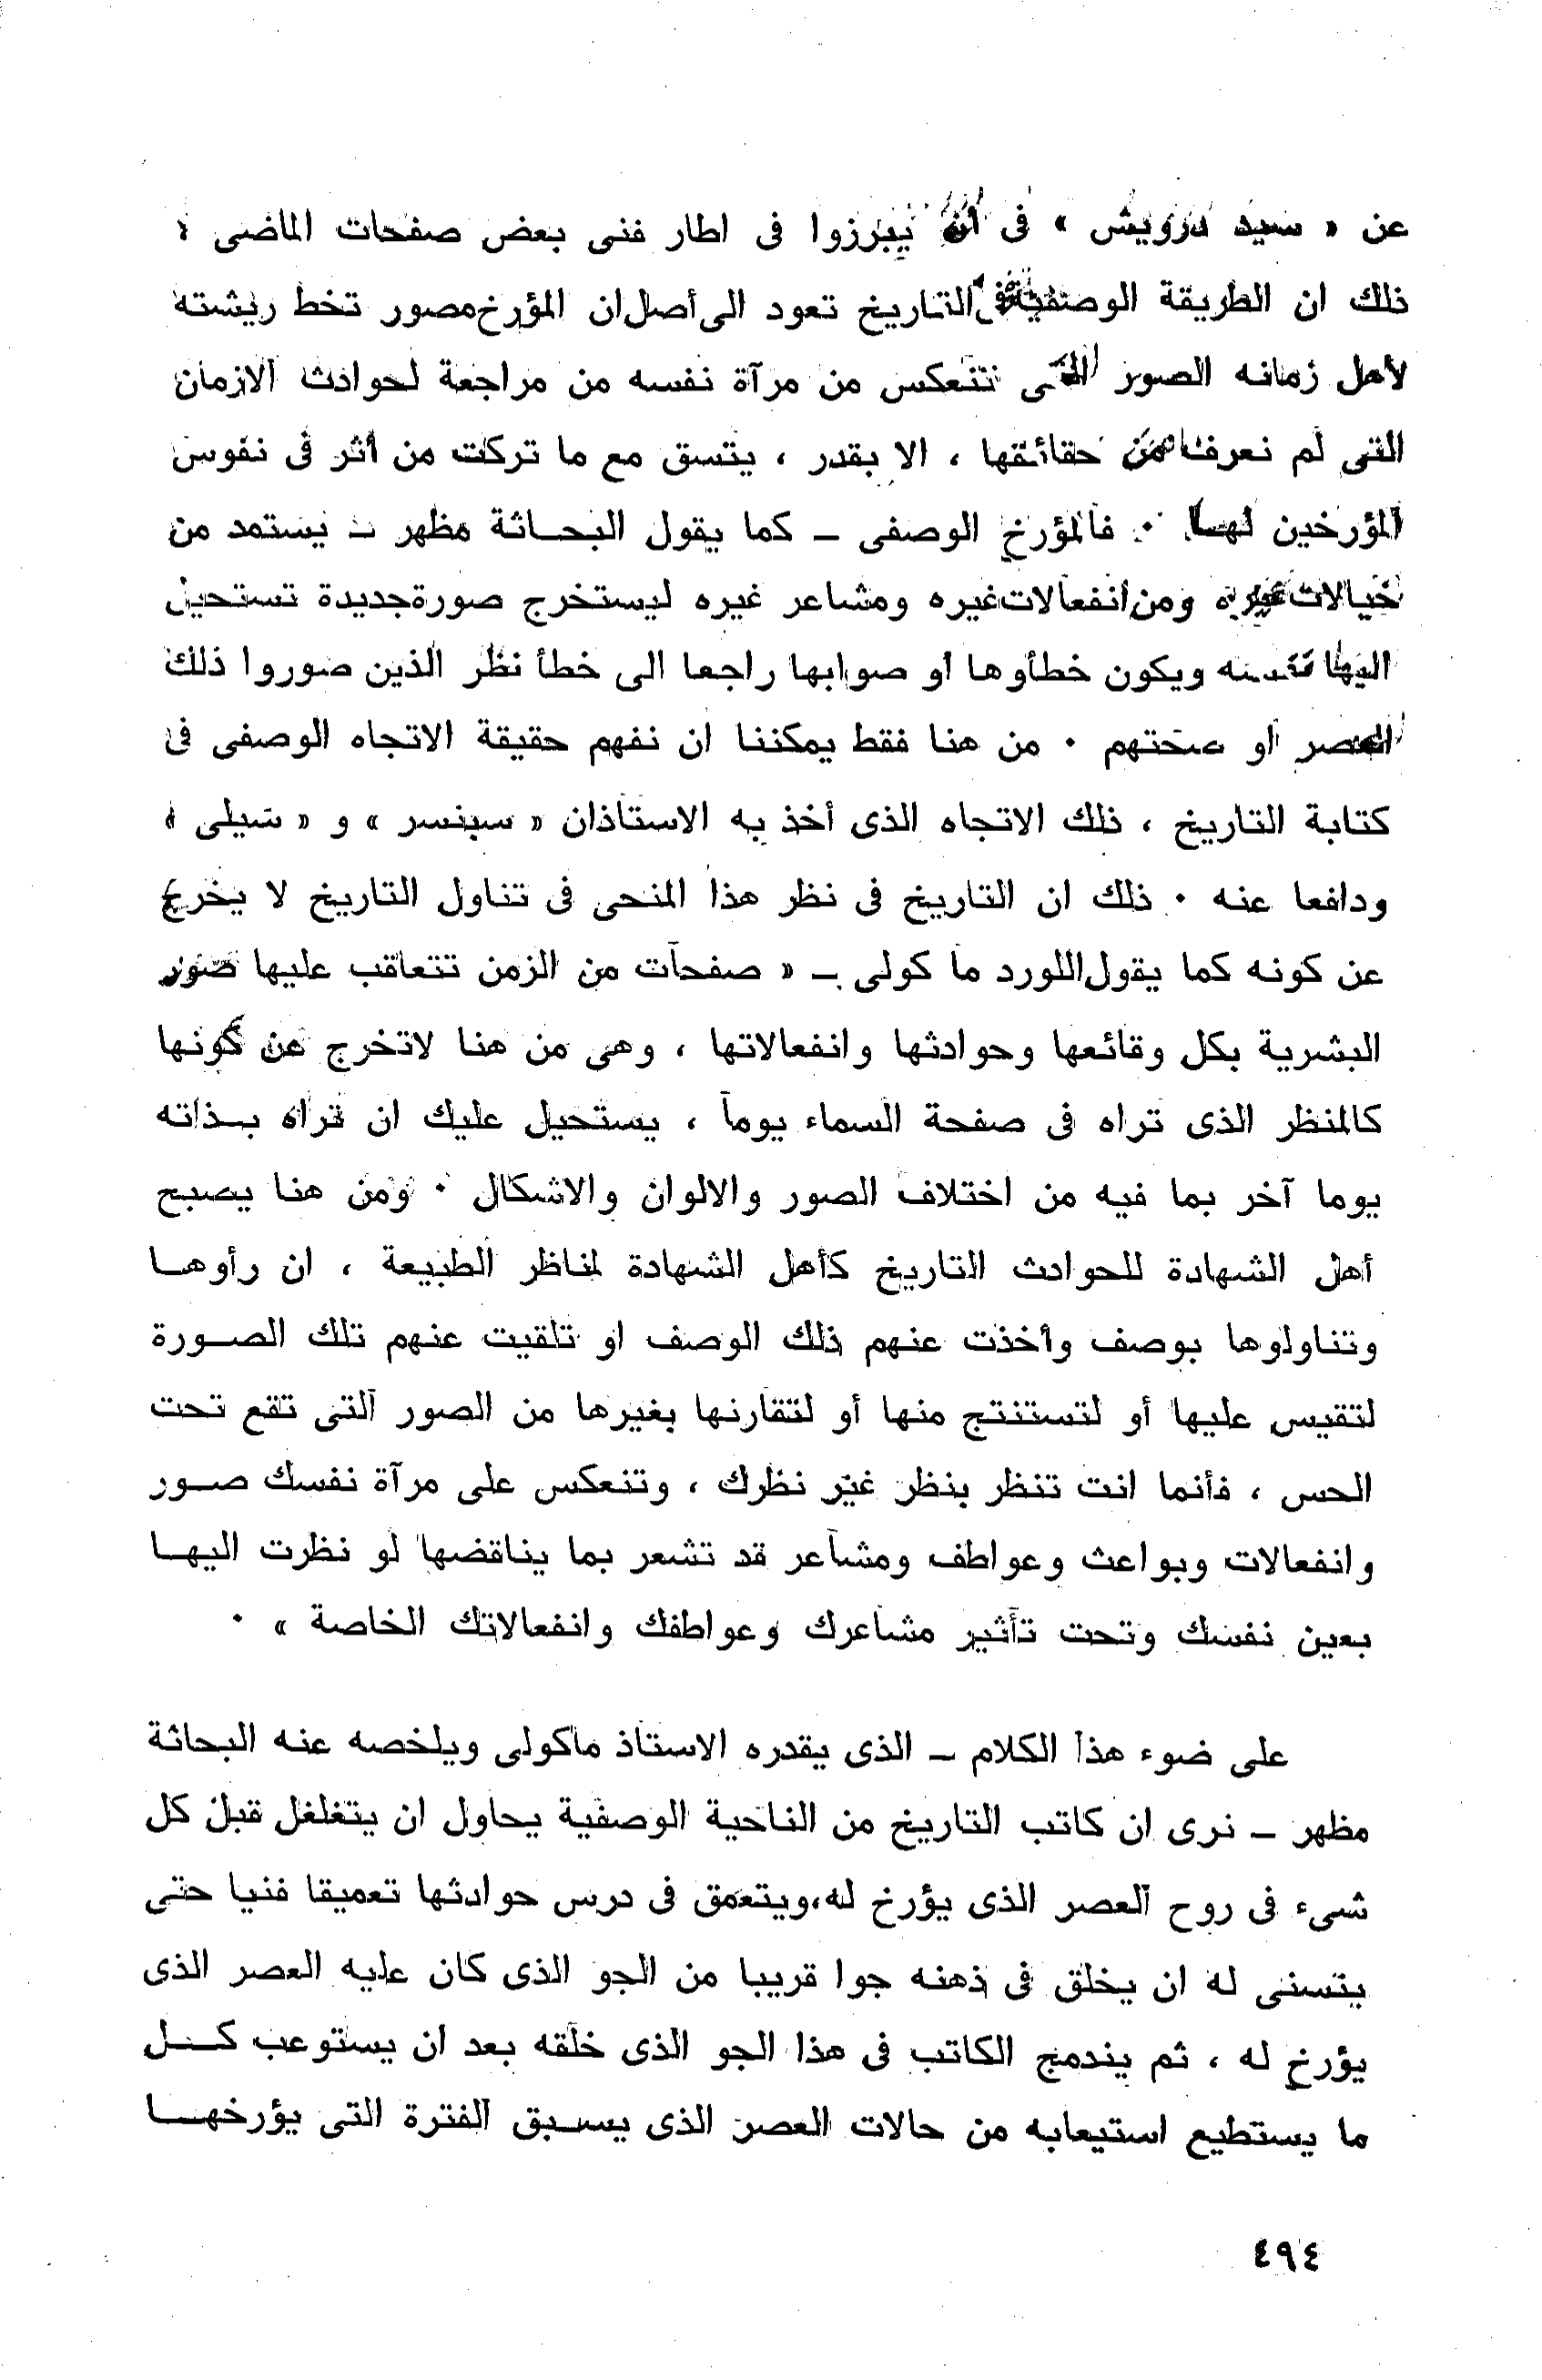 عن « سيد درويش » فى أن يبرزوا فى اطار فنى بعض صفحات الماضى ؛
ذلك ان الطريقة الوصفية فى التاريخ تعود الى أصل ان المؤرخ مصور تخط ريشته
لأهل زمانه الصور التى تنعكس من مرآة نفسه من مراجعة لحوادث الازمان
التى لم نعرف من حقائقها ، الا بقدر ، يتسق مع ما تركت من أثر فى نفوس
المؤرخين لها . فالمؤرخ الوصفى – كما يقول البحاثة مظهر – يستمد من
خيالات غيره ومن انفعالات غيره ومشاعر غيره ليستخرج صورة جديدة تستحيل
اليها نفسه ويكون خطأوها أو صوابها راجعا الى خطأ نظر الذين صوروا ذلك
العصر أو صحتهم . من هنا فقط يمكننا ان نفهم حقيقة الاتجاه الوصفى فى
كتابة التاريخ ، ذلك الاتجاه الذى أخذ به الاستاذان « سبنسر » و « شيلى »
ودافعا عنه . ذلك ان التاريخ فى نظر هذا المنحى فى تناول التاريخ لا يخرج
عن كونه كما يقول اللورد ما كولى – « صفحات من الزمن تتعاقب عليها صور
البشرية بكل وقائعها وحوادثها وانفعالاتها ، وهى من هنا لاتخرج عن كونها
كالمنظر الذى تراه فى صفحة السماء يوما ، يستحيل عليك ان تراه بـذاته
يوما آخر بما فيه من اختلاف الصور والالوان والاشكال . ومن هنا يصبح
أهل الشهادة للحوادث التاريخ كأهل الشهادة لمناظر الطبيعة ، ان رأوهـا
وتناولوها بوصف وأخذت عنهم ذلك الوصف او تلقيت عنهم تلك الصـورة
لتقيس عليها أو لتستنتج منها أو لتقارنها بغيرها من الصور التى تقع تحت
الحس ، فأنما انت تنظر بنظر غير نظرك ، وتنعكس على مرآة نفسك صـور
وانفعالات وبواعث وعواطف ومشاعر قد تشعر بما يناقضها لو نظرت اليهـا
بعين نفسك وتحت تأثير مشاعرك وعواطفك وانفعالاتك الخاصة » .
على ضوء هذا الكلام – الذى يقدره الاستاذ ماكولى ويلخصه عنه البحاثة
مظهر – نرى ان كاتب التاريخ من الناحية الوصفية يحاول ان يتغلغل قبل كل
شىء فى روح العصر الذى يؤرخ له،ويتعمق فى درس حوادثها تعميقا فنيا حتى
يتسنى له ان يخلق فى ذهنه جوا قريبا من الجو الذى كان عليه العصر الذى
يؤرخ له ، ثم يندمج الكاتب فى هذا الجو الذى خلقه بعد ان يستوعب كـل
ما يستطيع استيعابه من حالات العصر الذى يسـبق الفترة التى يؤرخهـا
٤٩٤